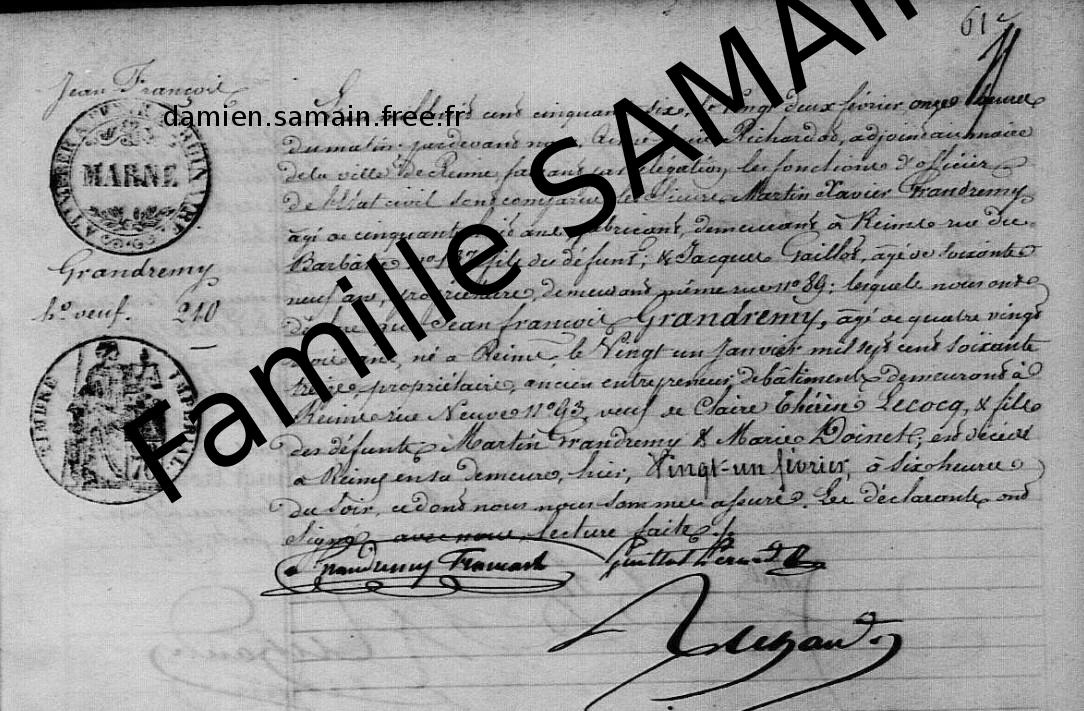 61
Jean François
damien.samain.free.fr
Famille SAMAIN
A TIMBRER A L'EXTRAORDINAIRE
MARNE
Grandremy
h.e veuf. 210
TIMBRE IMPERIAL
cent cinquante six, le vingt deux février onze heures
du matin pardevant nous Richardot, adjoint au maire
de la ville de Reims, faisant par délégation les fonctions d'officier
de l'état civil sont comparus les Sieurs Martin Xavier Grandremy
agé de cinquante ans, fabricant, demeurant à Reims rue du
Barbâtre n° fils du défunt; & Jacques Gaillot, âgé de soixante
neuf ans, propriétaire, demeurant même rue n° 89; lesquels nous ont
Jean françois Grandremy, âgé de quatre vingt
trois ans, né à Reims, le Vingt un Janvier mil sept cent soixante
treize, propriétaire, ancien entrepreneur de bâtiments demeurant à
Reims rue Neuve n° 93, veuf de Claire Thérèse Lecocq, & fils
des défunts Martin Grandremy & Marie Doinet; est décédé
à Reims en sa demeure, hier, Vingt-un février, à six heures
du soir, ce dont nous nous sommes assuré. Les déclarants ont
signé avec nous, lecture faite.
Grandremy